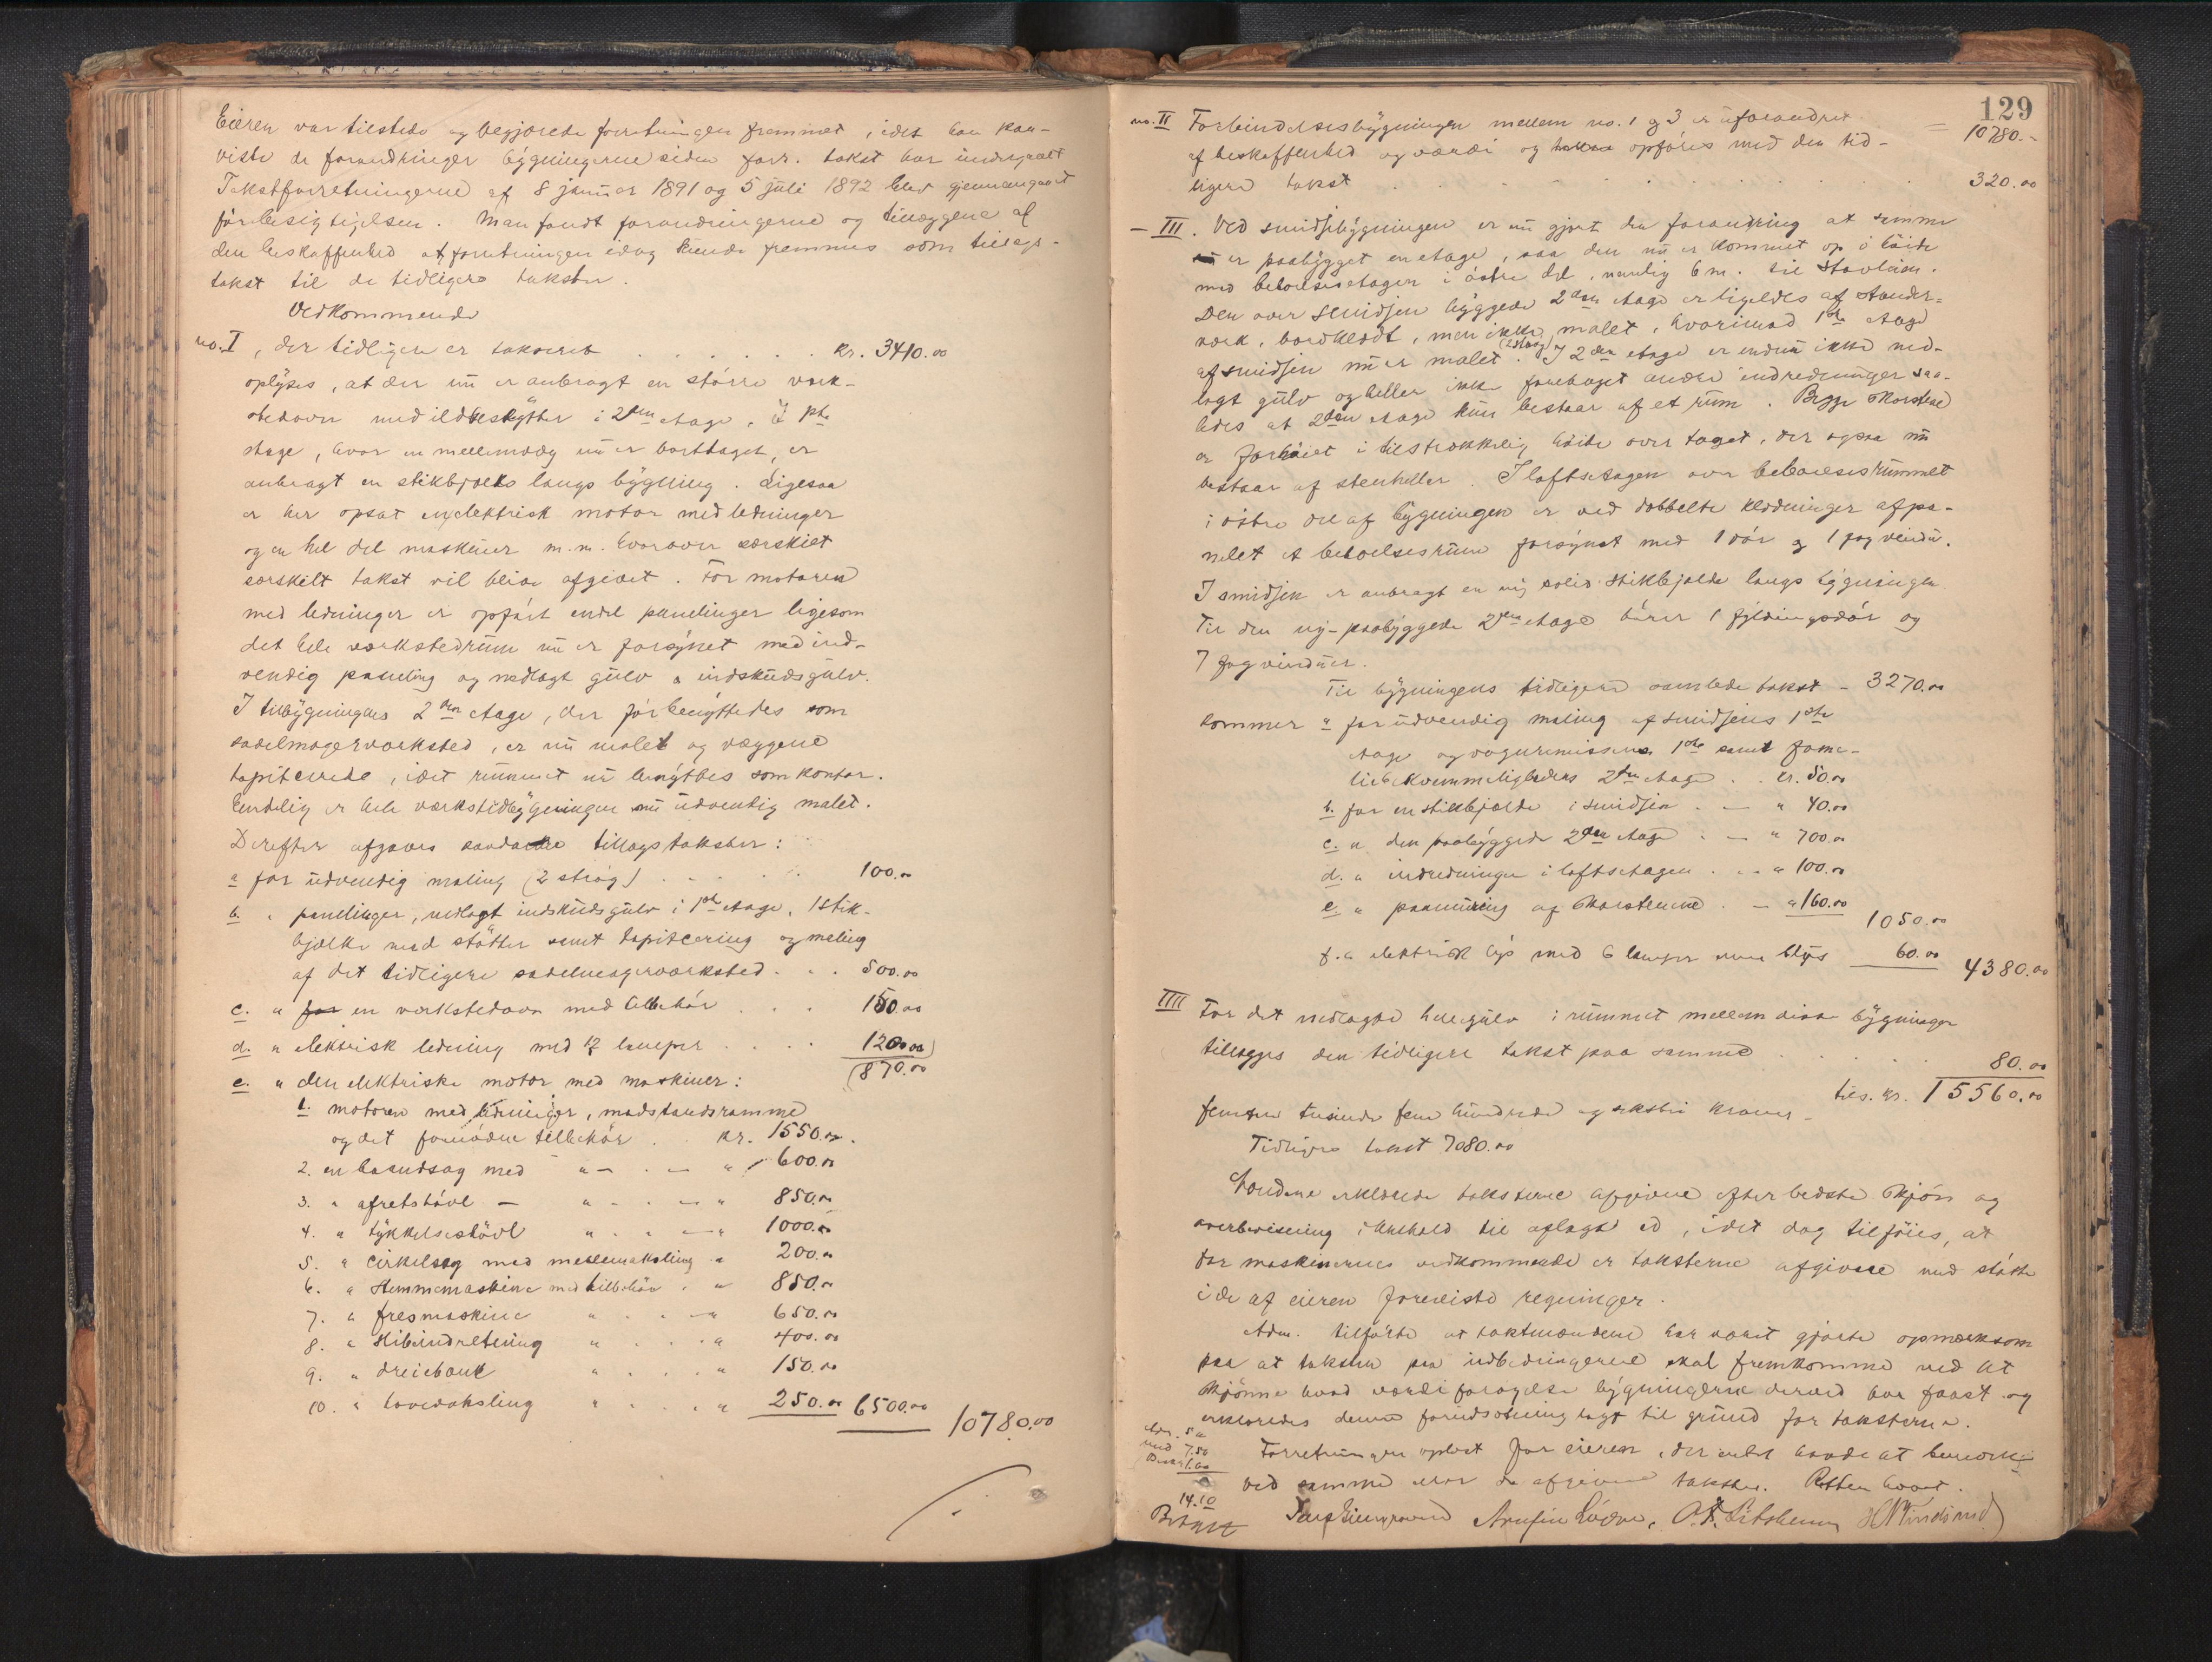 Eieren var tilstede og begjærede forretningen fremmet, idet han paa-
viste de forandringer bygningerne siden forr. takst har undergaaet
Takstforretningerne af 8 januar 1891 og 5 juli 1892 blev gjennemgaaet
før besigtigelsen. Man fandt forandringerne og tillæggene af
den beskaffenhed at forretningen idag kunde fremmes som tillægs-
takst til de tidligere takster.
Vedkommende
no. I, der tidligere er takseret . . . . . . kr. 3410.00
oplyses, at der nu er anbragt en større verk-
stedovn med ildbeskytter i 2den etage. I 1ste
etage, hvor en mellemvæg nu er borttaget, er
anbragt en stikbjælke langs bygning. Ligesaa
er her opsat en elektrisk motor med ledninger
og en hel del maskiner m.m. hvorover særskilt
særskilt takst vil blive afgivet. For motoren
med ledninger er opført endel panelinger ligesom
det hele verkstedrum nu er forsynet med ind-
vendig paneling og nedlagt gulv & indskudsgulv.
I tilbygningens 2den etage, der før benyttedes som
sadelmagerværksted, er nu malet og væggene
tapiterede, idet rummet nu benyttes som kontor.
Endelig er hele værkstedbygningen nu udvendig malet.
Derefter afgaves saadanne tillægstakster:
a for udvendig maling (2 strøg) . . . . . 100.00
b. " panelinger, nedlagt indskudsgulv i 1ste etage, 1 stik-
bjælke med støtter samt tapitcering og maling
af det tidligere sadelmagerværksted . . . 500.00
c. " for en verkstedovn med tilbehør . . . 150.00
d. " elektrisk ledning med 12 lamper . . . . 120.00
e. " den elektriske motor med maskiner: (870.00
1. motoren med ledninger, modstandsramme
og det fornødne tilbehør . . kr. 1550.00.
2. en baandsag med " — . — " 600.00
3. " afretshøvl — " - . — " 850.00
4. " tykkelseshøvl " . . — " 1000.00
5. " cirkelsag med mellemaksling " 200.00
6. " Stemmemaskine med tilbehør . " 850.00
7. " fresmaskine " . . — " 650.00
8. " Slibeindretning " . . . " 400.00
9. " dreiebænk " . . . " 150.00
10. " hovedaksling " . . . " 250.00 6500.00
10780.00
129
no. II Forbindelsesbygningen mellem no. 1 og 3 er uforandret = 10780.-
af beskaffenhed og værdi og takse opføres med den tid-
ligere takst . . . . . . . . . . 320.00
— III. Ved smidjebygningen er nu gjort den forandring at samme
nu er paabygget en etage, saa den nu er kommet op i høide
med beboelsesetagen i østre del, nemlig 6 m. til stavlein.
Den over smidjen byggede 2den etage er ligeledes af stander-
værk, bordklædt, men ikke malet, hvorimod 1ste etage
af smidjen nu er malet (2 strøg). I 2den etage er endnu ikke ned-
lagt gulv og heller ikke foretaget andre indredninger saa-
ledes at 2den etage kun bestaar af et rum. Begge skorstene
er forhøiet i tilstrækkelig høide over taget, der ogsaa nu
bestaar af stenheller. I loftsetagen over beboelsesrummet
i østre del af bygningen er ved dobbelte klædninger afpa-
nelet et beboelsesrum forsynet med 1 dør og 1 fag vindu.
I smidjen er anbragt en ny solid stikbjelke langs bygningen
Til den ny-paabyggede 2den etage hører 1 fyldingsdør og
7 fag vinduer.
Til bygningens tidligere samlede takst - 3270.00
kommer a for udvendig maling af smidjens 1ste
etage og vognremissens 1ste samt fami-
liebekvemmelighedens 2den etage . . kr. 50.00
b. for en stikbjælke i smidjen . — " 40.00
c. " den paabyggede 2den etage . — " 700.00
d. " indredninger i loftsetagen . . . " 100.00
e. " paamuring af skorstenene . — " 160.00
1050.00
f. " elektrisk lys med 6 lamper 60.00 4380.00
IIII For det nedlagte hellegulv i rummet mellem disse bygninger
tillægges den tidligere takst paa samme . . . . . 80.00
tils. kr. 15560.00
femten tusinde fem hundrede og seksti kroner -
Tidligere takst 7080.00
Mændene erklærede taksterne afgivne efter bedste skjøn og
overbevisning i henhold til aflagt ed, idet dog tilføies, at
for maskinernes vedkommende er taksterne afgivne med støtte
i de af eieren foreviste regninger.
Adm. tilførte at takstmændene har været gjorte opmærksom
paa at taksten paa indredningerne skal fremkomme ved at
skjønne hvad værdiforøgelse bygningerne derved har faaet og
erklæredes denne forudsætning lagt til grund for taksterne.
Forretningen oplæst for eieren, der intet havde at bemærke
ved samme eller de afgivne takster. Retten hævet.
7.50
14.10
Betalt